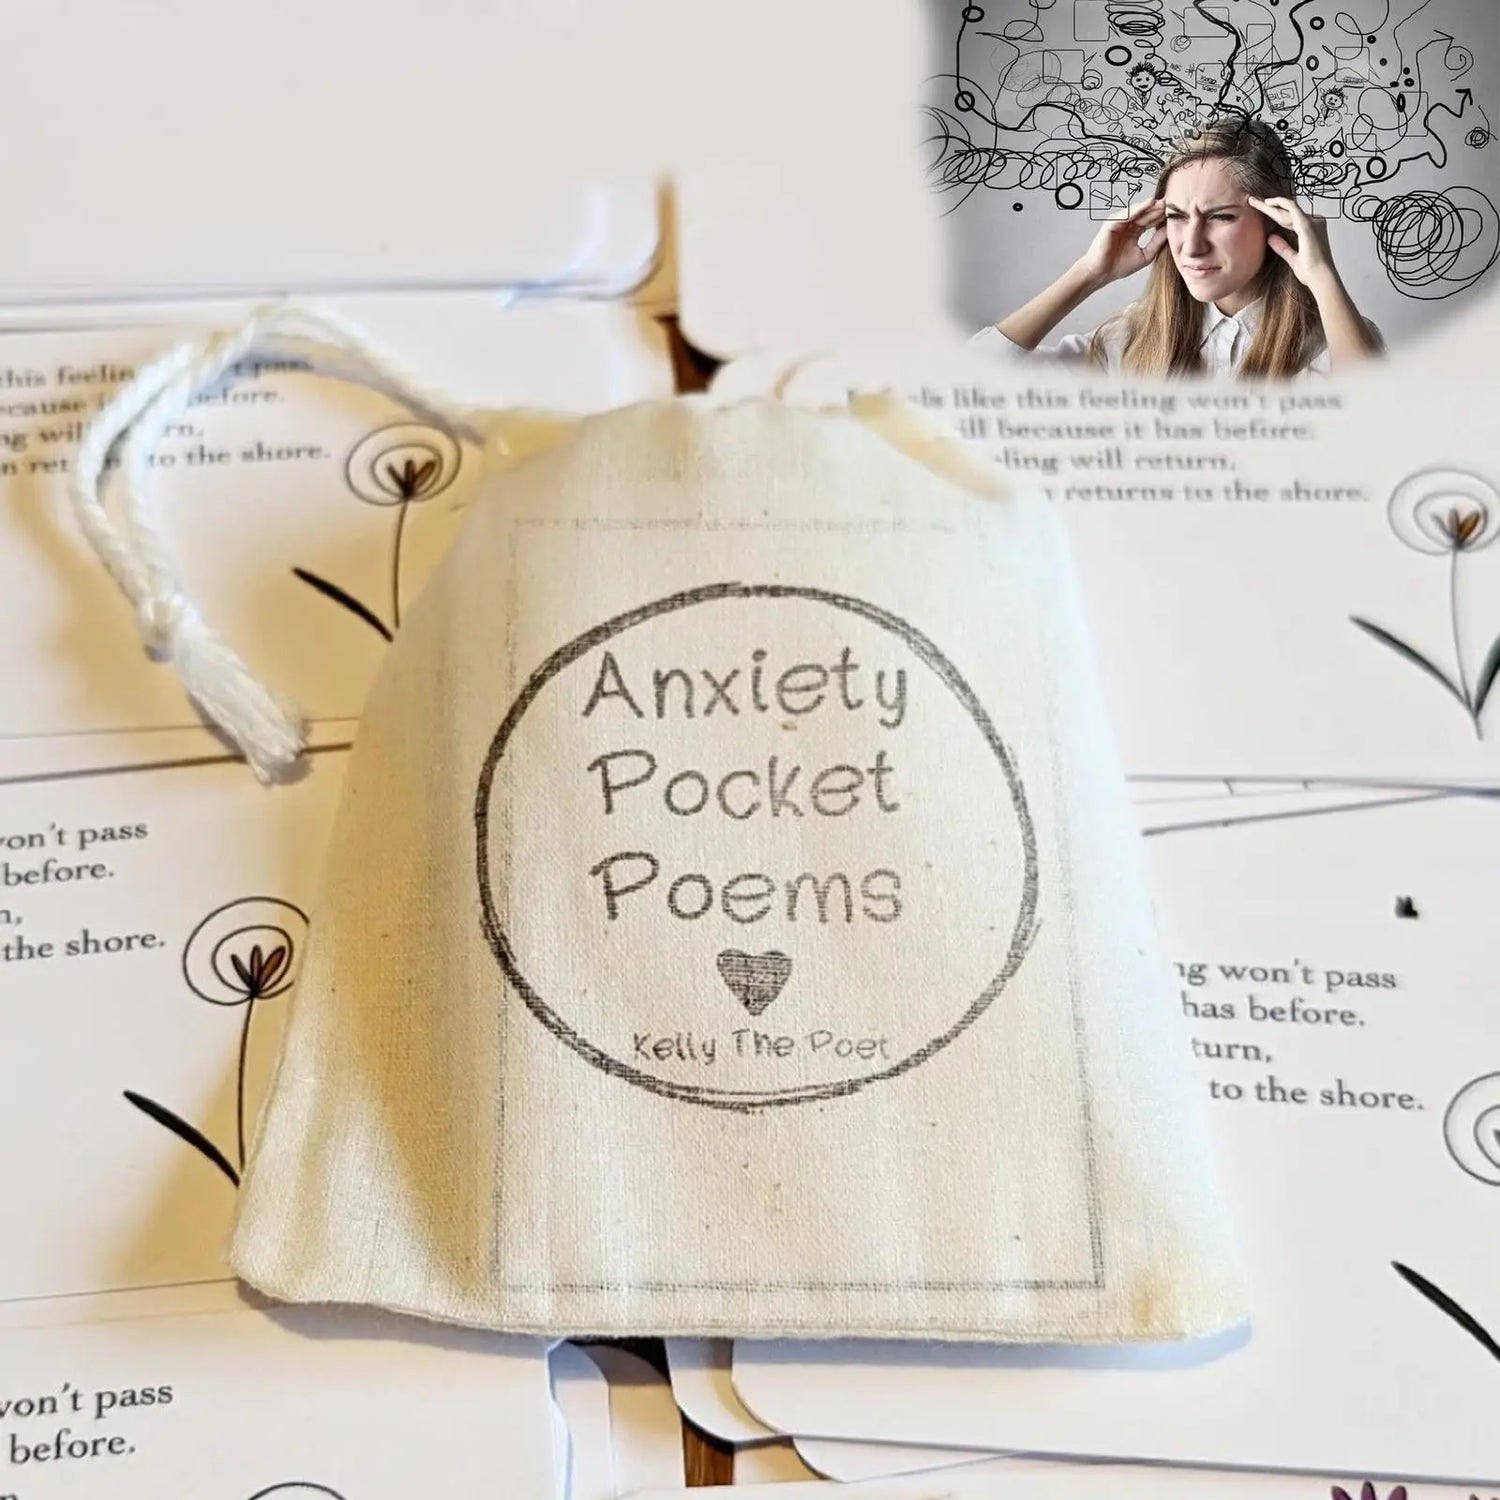 this feelin
pass
cause
before.
ng wil
rn,
n ret
to the shore.
like this feeling won't pass
ill because it has before.
ling will return,
returns to the shore.
Anxiety
Pocket
Poems
Kelly The Poet
von't pass
before.
n,
the shore.
ng won't pass
has before.
turn,
to the shore.
von't pass
before.